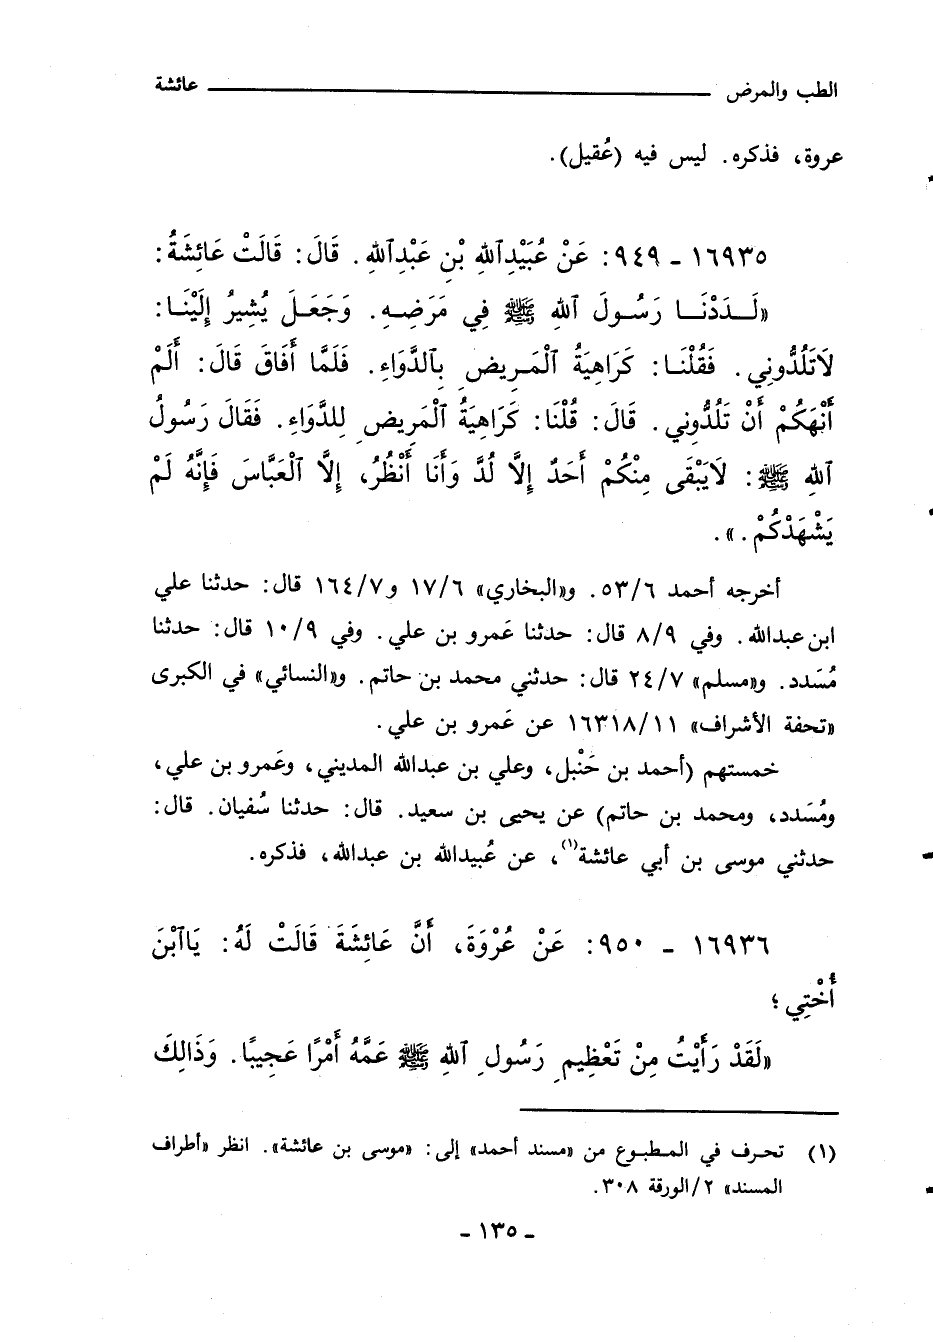 الطب والمرض ــــــــ عائشة
عروة، فذكره. ليس فيه (عُقيل).
١٦٩٣٥ ـ ٩٤٩: عَنْ عُبَيْدِاَللهِ بْنِ عَبْدِاَللهِ. قَالَ: قَالَتْ عَائِشَةُ:
«لَـدَدْنَـا رَسُـولَ اَللهِ ﷺ فِي مَرَضِـهِ. وَجَعَـلَ يُشِيرُ إِلَيْنَـا:
لاَتَلُدُّونِي. فَقُلْنَـا: كَرَاهِيَةُ اَلْمَـرِيضِ بِاَلدَّوَاءِ. فَلَمَّا أَفَاقَ قَالَ: أَلَمْ
أَنْهَكُمْ أَنْ تَلُدُّونِي. قَالَ: قُلْنَا: كَرَاهِيَةُ اَلْمَرِيضِ لِلدَّوَاءِ. فَقَالَ رَسُولُ
اَللهِ ﷺ: لاَيَبْقَى مِنْكُمْ أَحَدٌ إِلَّا لُدَّ وَأَنَا أَنْظُرُ، إِلَّا اَلْعَبَّاسَ فَإِنَّهُ لَمْ
يَشْهَدْكُمْ.».
أخرجه أحمد ٥٣/٦. و«البخاري» ١٧/٦ و١٦٤/٧ قال: حدثنا علي
ابن عبدالله. وفي ٨/٩ قال: حدثنا عَمرو بن علي. وفي ١٠/٩ قال: حدثنا
مُسَدد. و«مسلم» ٢٤/٧ قال: حدثني محمد بن حاتم. و«النسائي» في الكبرى
«تحفة الأشراف» ١٦٣١٨/١١ عن عَمرو بن علي.
خمستهم (أحمد بن حَنْبل، وعلي بن عبدالله المديني، وعَمرو بن علي،
ومُسَدد، ومحمد بن حاتم) عن يحيى بن سعيد. قال: حدثنا سُفيان. قال:
حدثني موسى بن أبي عائشة(١)، عن عُبيدالله بن عبدالله، فذكره.
١٦٩٣٦ ـ ٩٥٠: عَنْ عُرْوَةَ، أَنَّ عَائِشَةَ قَالَتْ لَهُ: يَااَبْنَ
أُخْتِي؛
«لَقَدْ رَأَيْتُ مِنْ تَعْظِيمِ رَسُولِ اَللهِ ﷺ عَمَّهُ أَمْرًا عَجِيبًا. وَذَالِكَ
(١) تحـرف في المـطبـوع من «مسند أحمد» إلى: «موسى بن عائشة». انظر «أطراف
المسند» ٢/الورقة ٣٠٨.
ـ ١٣٥ ـ